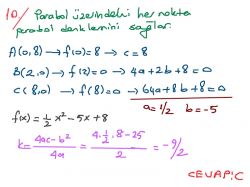 10/ Parabol üzerindeki her nokta
parabol denklemini sağlar.
A(0,8) → f(0) = 8 → c = 8
B(2,0) → f(2) = 0 → 4a + 2b + 8 = 0
C(8,0) → f(8) = 0 → 64a + 8b + 8 = 0
a = 1/2 b = -5
f(x) = 1/2 x² - 5x + 8
k = 4ac - b² / 4a = 4·1/2·8 - 25 / 2 = -9/2
CEVAP: C